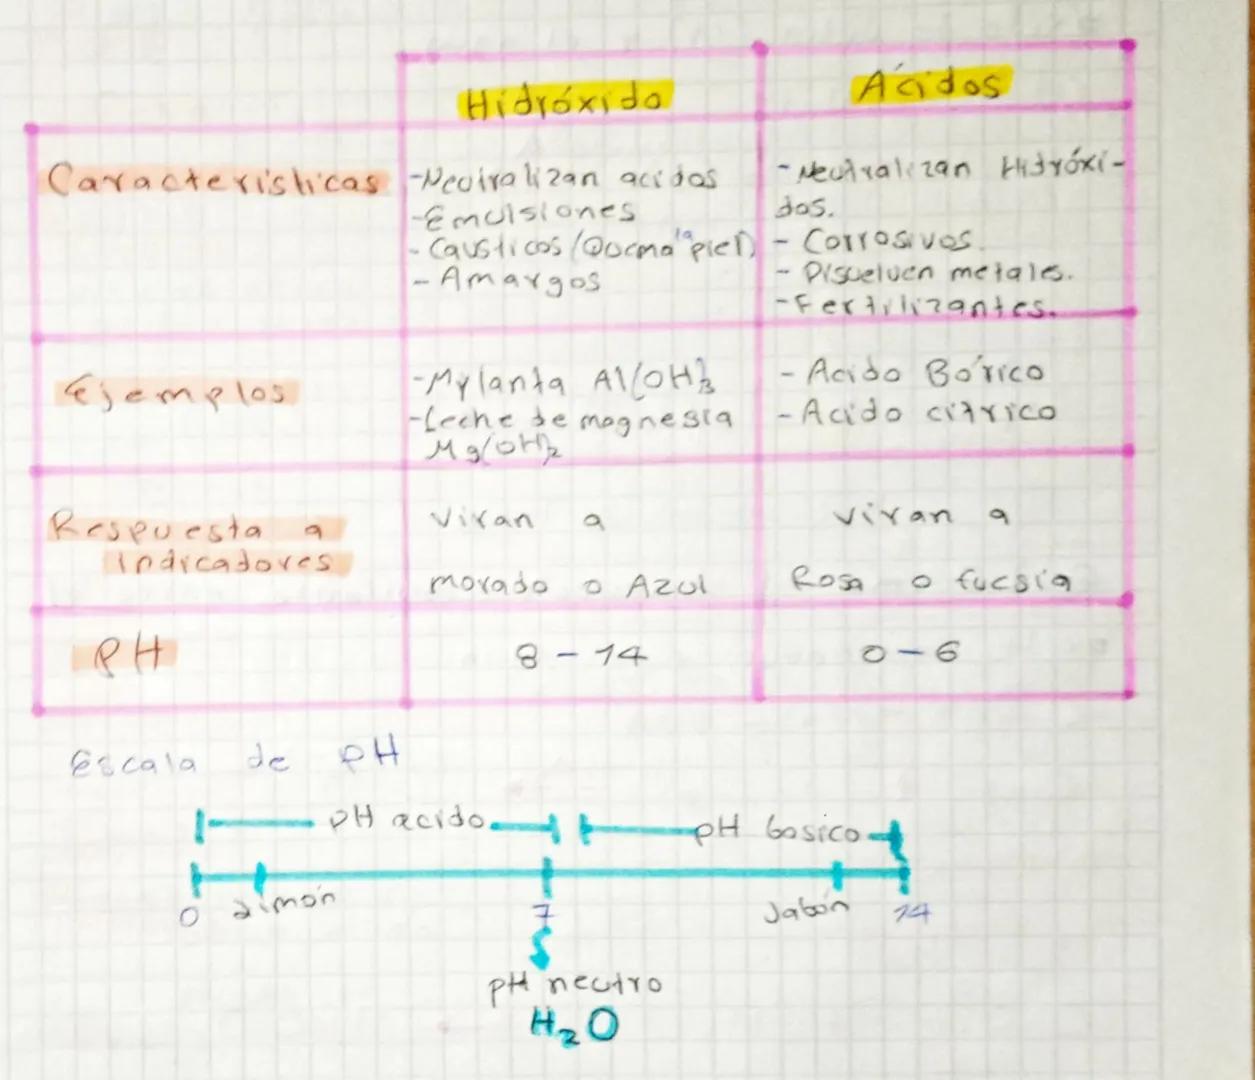 Hidróxido
Ácidos
Características
-Neutralizan acidos
-Emulsiones
- Causticos (Quema la piel)
- Amargos
- Neutralizan Hidróxi-
dos.
- Corrosivos.
- Disuelven metales.
-Fertilizantes.
Ejemplos
-Mylanta Al(OH)3
-Leche de magnesia
Mg(OH)2
- Acido Bórico
- Acido cítrico
Respuesta a
Indicadores
Viran a
morado o Azul
Viran a
Rosa o fucsia
PH
8 - 14
0 - 6
Escala de PH
pH acido. pH basico
0 Limón 7 Jabón 14
pH neutro
H2O